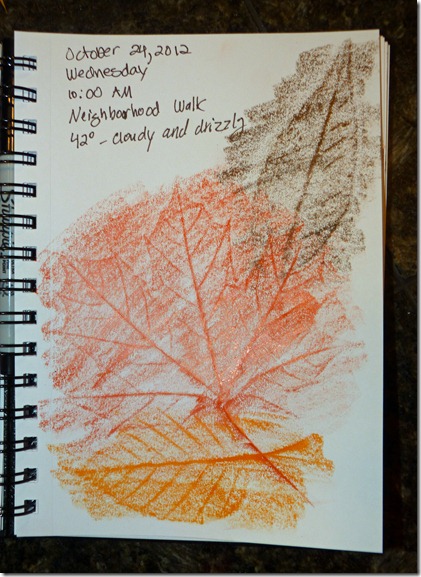 October 24, 2012
Wednesday
10:00 AM
Neighborhood Walk
42° - cloudy and drizzly